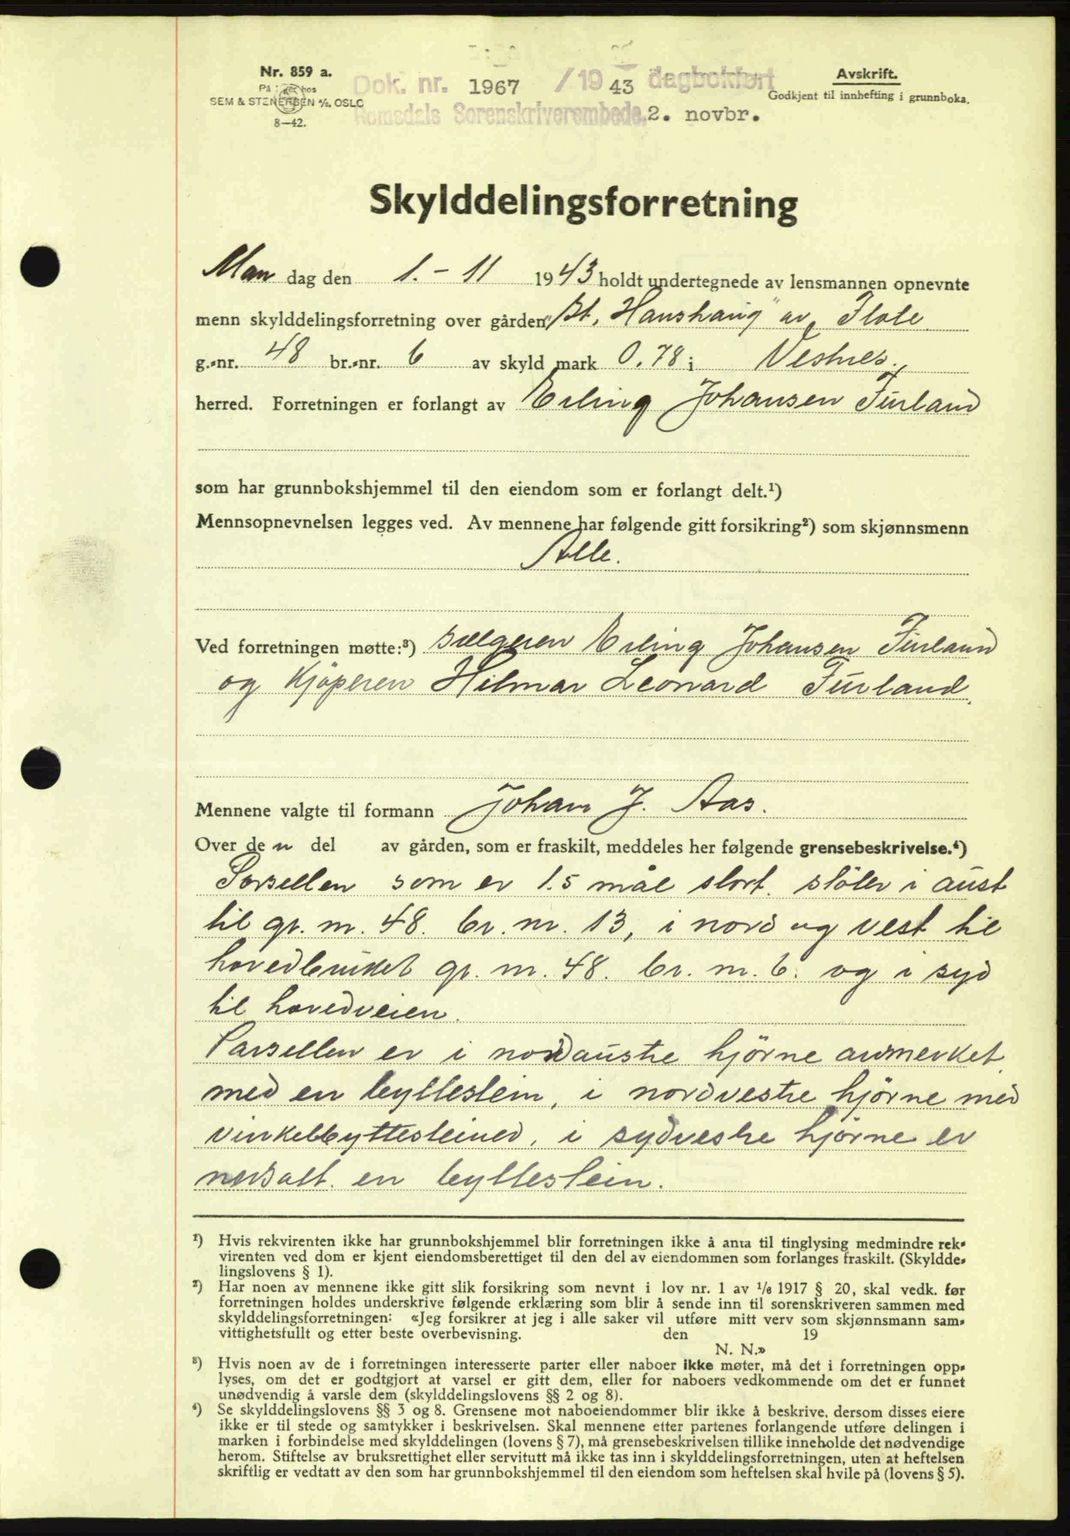 Nr. 859 a.
På lager hos
SEM & STENERSEN A/S. OSLO
8—42.
Dok. nr. 1967 /19 43 dagbokført
Romsdals Sorenskriverembede, 2. novbr.
Avskrift.
Godkjent til innhefting i grunnboka.
Skylddelingsforretning
Man dag den 1. - 11 1943 holdt undertegnede av lensmannen opnevnte
menn skylddelingsforretning over gården "Bt. Haushaug" av Flote
g.-nr. 48 br.-nr. 6 av skyld mark 0.78 i Vestnes,
herred. Forretningen er forlangt av Erling Johansen Furland
som har grunnbokshjemmel til den eiendom som er forlangt delt.¹)
Mennsopnevnelsen legges ved. Av mennene har følgende gitt forsikring²) som skjønnsmenn
Alle.
Ved forretningen møtte:³) Selgeren Erling Johansen Furland
og Kjøperen Hilmar Leonard Furland.
Mennene valgte til formann Johan J. Aas.
Over de n del av gården, som er fraskilt, meddeles her følgende grensebeskrivelse.⁴)
Parsellen som er 1.5 mål stort. støter i aust
til gr. nr. 48. br. nr. 13, i nord og vest til
hovedbruket gr. nr. 48. br. nr. 6. og i syd
til hovedveien.
Parsellen er i nordaustre hjørne avmerket
med en byttestein, i nordvestre hjørne med
vinkelbyttesteiner, i sydvestre hjørne er
nedsatt en byttestein.
¹) Hvis rekvirenten ikke har grunnbokshjemmel blir forretningen ikke å anta til tinglysing medmindre rek-
virenten ved dom er kjent eiendomsberettiget til den del av eiendommen som forlanges fraskilt. (Skyldde-
lingslovens § 1).
²) Har noen av mennene ikke gitt slik forsikring som nevnt i lov nr. 1 av 1/6 1917 § 20, skal vedk. før
forretningen holdes underskrive følgende erklæring som blir å sende inn til sorenskriveren sammen med
skylddelingsforretningen: «Jeg forsikrer at jeg i alle saker vil utføre mitt verv som skjønnsmann sam-
vittighetsfullt og etter beste overbevisning. den 19
N. N.»
³) Hvis noen av de i forretningen interesserte parter eller naboer ikke møter, må det i forretningen opp-
lyses, om det er godtgjort at varsel er gitt dem, eller for naboers vedkommende om det er funnet
unødvendig å varsle dem (skylddelingslovens §§ 2 og 8).
⁴) Se skylddelingslovens §§ 3 og 8. Grensene mot naboeiendommer blir ikke å beskrive, dersom disses eiere
ikke er til stede og samtykker i beskrivelsen. Skal mennene etter partenes forlangende utføre delingen i
marken i forbindelse med skylddelingen (lovens § 7), må grensebeskrivelsen tillike inneholde det nødvendige
herom. Stiftelse av bruksrettighet eller servitutt må ikke tas inn i skylddelingsforretningen, uten at heftelsen
skriftlig er vedtatt av den som har grunnbokshjemmel til den eiendom som heftelsen skal hvile på (lovens § 5).